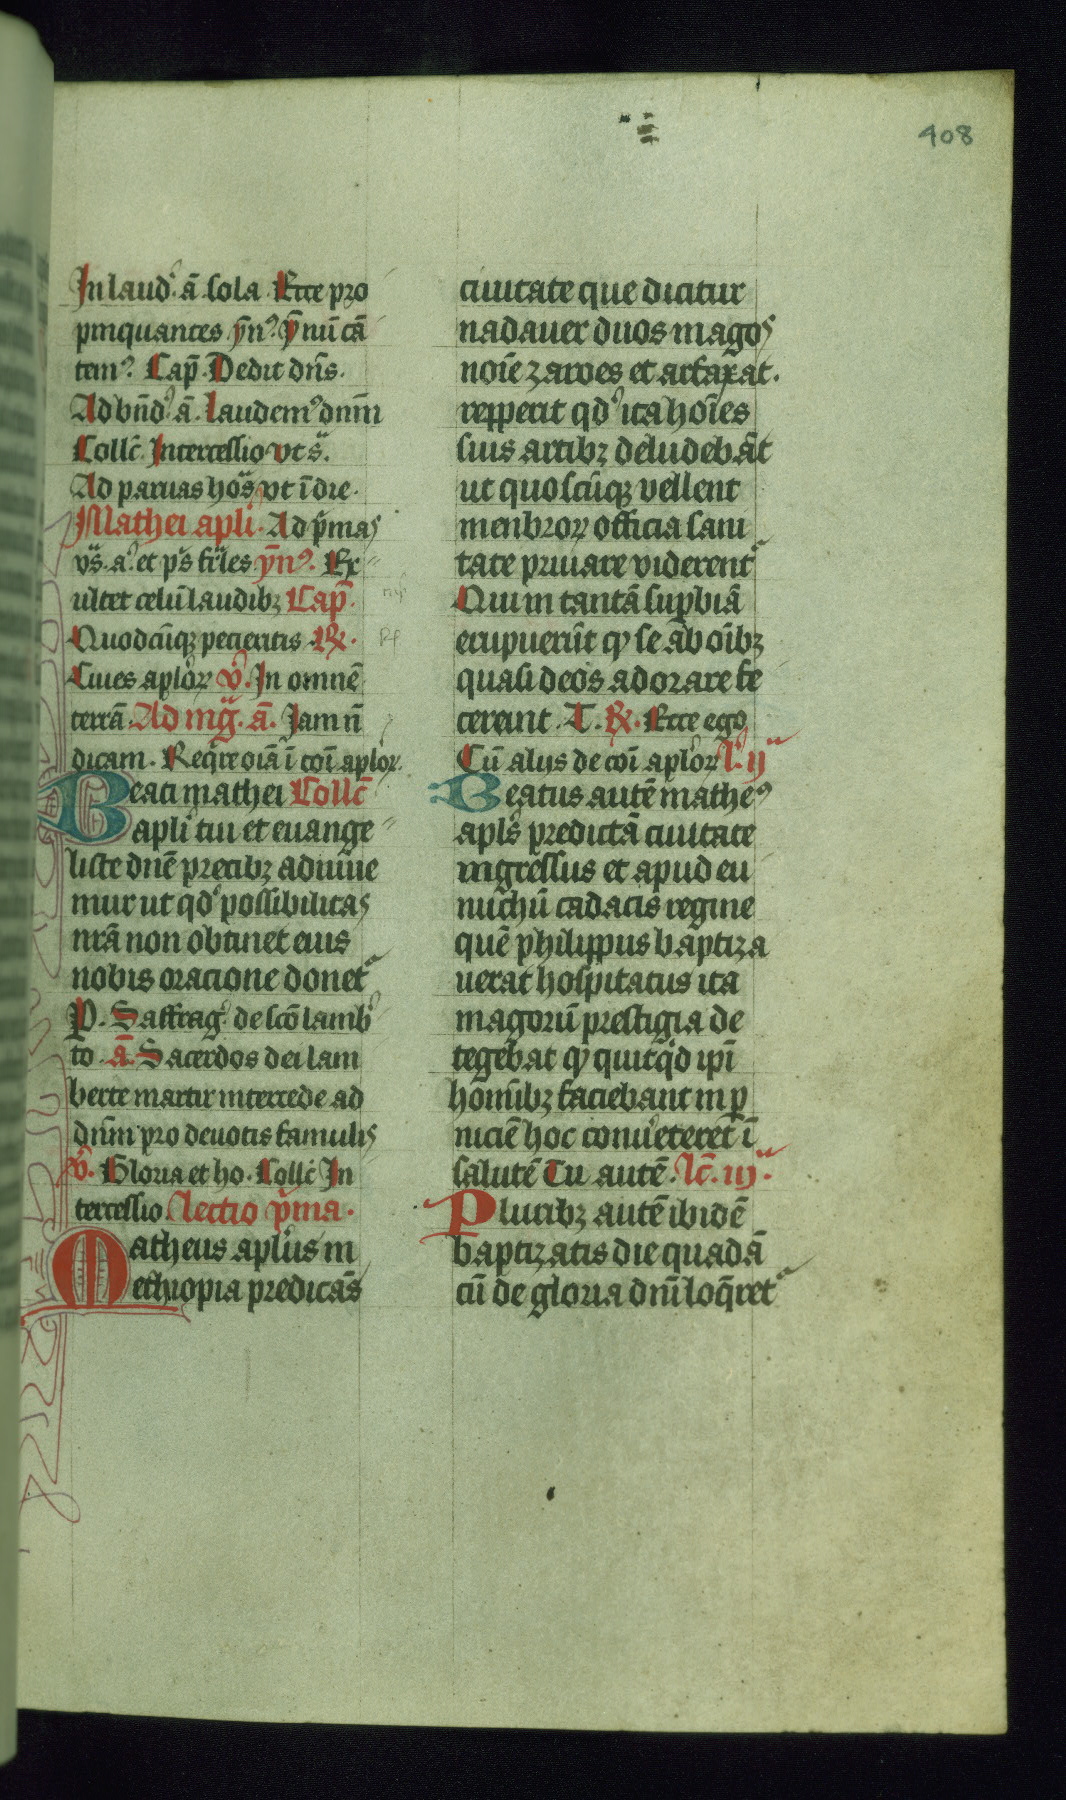 408
In laud᷒ . a᷒̄ . sola . Ecce pro
pinquantes . yn᷒ . ȳ nu᷒̄ cā
tem᷒ . Cap̄ . Dedit dn̄s .
Ad bn̄d᷒ ā . Laudem᷒ dnm̄
Collc̄ . Intercessio vt s̄ .
Ad paruas horas vt ī die .
Mathei apli . Ad p̄mas
vs̄ . a᷒ . et ps̄ fr̄les ym᷒ . Ex
ultet celū laudibꝫ Cap̄ .
Quodcūqꝫ petieritis . R̷ .
Ciues aplōꝝ v᷒ . In omnē
terrā . Ad mḡ . ā . Jam n̄
dicam . Req̄re oīa ī coī aploꝝ .
Beati mathei Collc̄
apli tui et euange
liste dnē precibꝫ adiuue
mur ut qd᷒ possibilitas
nr̄a non obtinet eius
nobis oracione donet᷒
P . Saffrag᷒ de scō lamb᷒
to . ā . Sacerdos dei lam
berte martir intercede ad
dnm̄ pro deuotis famulis
v᷒ . Gloria et ho . Collc̄ In
tercessio . Lectio p̄ma .
Matheus apl̄us in
ethiopia predicās
ciuitate que dicitur
nadauer duos magos
noīe zaroes et arfaxat .
repperit qd᷒ ita hoīes
suis artibꝫ deludebāt
ut quoscūqꝫ vellent
menbroꝝ officia sani
tate priuare viderent᷒
Qui in tantā supbiā
erupuerūt qꝫ se ab oībꝫ
quasi deos adorare fe
cerunt . T . R̷ . Ecce ego
Cū aliis de coī aploꝝ l᷒ . ij᷒
Beatus autē mathe᷒
apls̄ predictā ciuitate
ingressus et apud eu
nuchū cadacis regine
quē philippus baptiza
uerat hospitatus ita
magorū prestigia de
tegebat qꝫ quitq̄d ip̄i
homībꝫ faciebant in p
niciē hoc conu᷒teret ī
salutē Tu autē . lc̄ . iij᷒ .
Pluribꝫ autē ibidē
baptizatis die quadā
cū de gloria dnī loq̄ret᷒